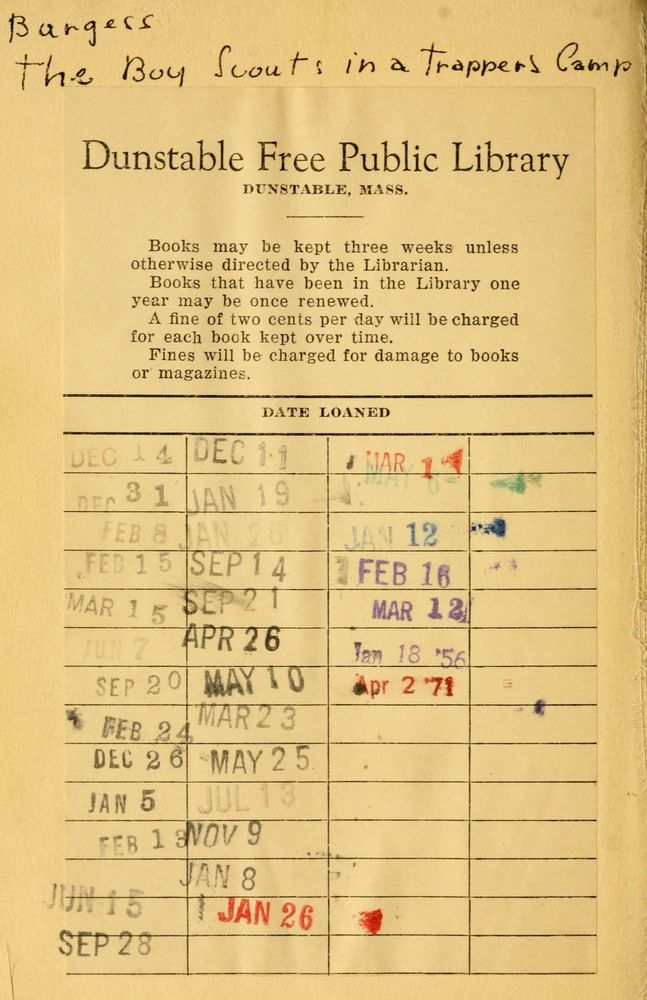 Burgess
The Boy Scouts in a Trapper's Camp
Dunstable Free Public Library
DUNSTABLE, MASS.
Books may be kept three weeks unless
otherwise directed by the Librarian.
Books that have been in the Library one
year may be once renewed.
A fine of two cents per day will be charged
for each book kept over time.
Fines will be charged for damage to books
or magazines.
DATE LOANED
DEC 14 DEC 11 MAR 1
DEC 31 JAN 19
FEB 8 JAN 26 JAN 12
FEB 15 SEP 14 FEB 16
MAR 15 SEP 21 MAR 12
JUN 7 APR 26 Jan 18 '56
SEP 20 MAY 10 Apr 2 '71
FEB 24 MAR 23
DEC 26 MAY 25
JAN 5 JUL 13
FEB 13 NOV 9
JAN 8
JUN 15 JAN 26
SEP 28